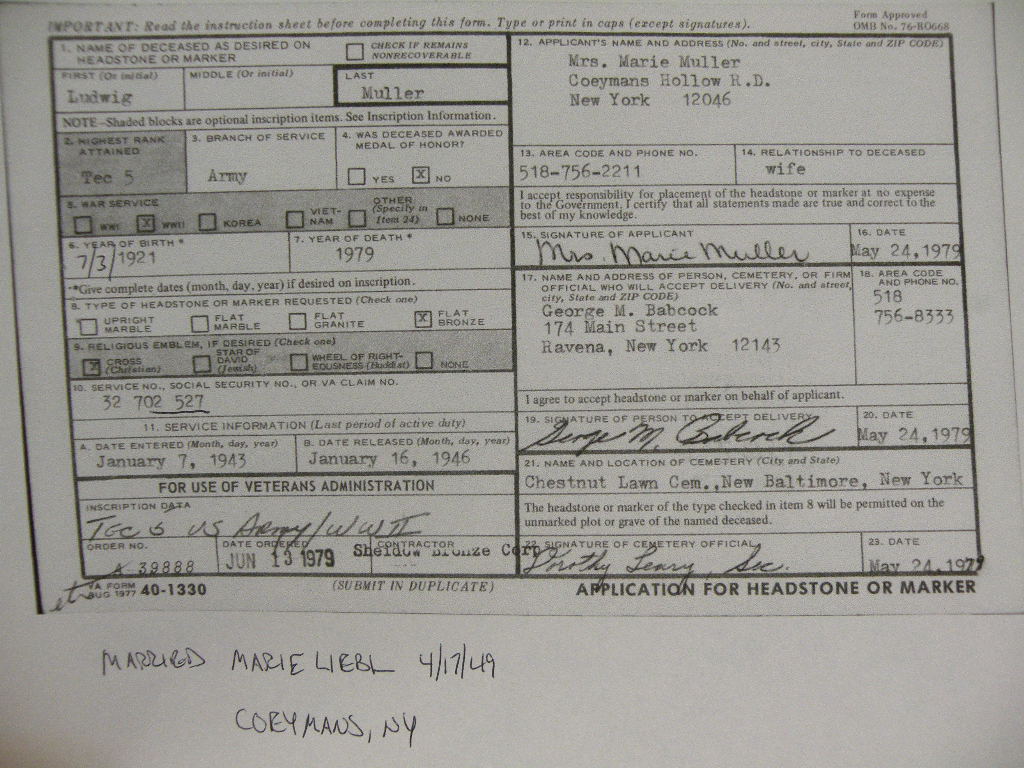 IMPORTANT: Read the instruction sheet before completing this form. Type or print in caps (except signatures).
Form Approved
OMB No. 76-R0668
1. NAME OF DECEASED AS DESIRED ON HEADSTONE OR MARKER
CHECK IF REMAINS NONRECOVERABLE
FIRST (Or initial) MIDDLE (Or initial) LAST
Ludwig Muller
NOTE-Shaded blocks are optional inscription items. See Inscription Information.
2. HIGHEST RANK ATTAINED
Tec 5
3. BRANCH OF SERVICE
Army
4. WAS DECEASED AWARDED MEDAL OF HONOR?
YES X NO
5. WAR SERVICE
WWI X WWII KOREA VIET-NAM OTHER (Specify in Item 24) NONE
6. YEAR OF BIRTH *
7/3/1921
7. YEAR OF DEATH *
1979
*Give complete dates (month, day, year) if desired on inscription.
8. TYPE OF HEADSTONE OR MARKER REQUESTED (Check one)
UPRIGHT MARBLE FLAT MARBLE FLAT GRANITE X FLAT BRONZE
9. RELIGIOUS EMBLEM, IF DESIRED (Check one)
X CROSS (Christian) STAR OF DAVID (Jewish) WHEEL OF RIGHT-EOUSNESS (Buddist) NONE
10. SERVICE NO., SOCIAL SECURITY NO., OR VA CLAIM NO.
32 702 527
11. SERVICE INFORMATION (Last period of active duty)
A. DATE ENTERED (Month, day, year)
January 7, 1943
B. DATE RELEASED (Month, day, year)
January 16, 1946
FOR USE OF VETERANS ADMINISTRATION
INSCRIPTION DATA
Tec 5 US Army/WWII
ORDER NO.
A 39888
DATE ORDERED
JUN 13 1979
CONTRACTOR
Sheidow Bronze Corp
12. APPLICANT'S NAME AND ADDRESS (No. and street, city, State and ZIP CODE)
Mrs. Marie Muller
Coeymans Hollow R.D.
New York 12046
13. AREA CODE AND PHONE NO.
518-756-2211
14. RELATIONSHIP TO DECEASED
wife
I accept responsibility for placement of the headstone or marker at no expense
to the Government. I certify that all statements made are true and correct to the
best of my knowledge.
15. SIGNATURE OF APPLICANT
Mrs. Marie Muller
16. DATE
May 24,1979
17. NAME AND ADDRESS OF PERSON, CEMETERY, OR FIRM
OFFICIAL WHO WILL ACCEPT DELIVERY (No. and street,
city, State and ZIP CODE)
George M. Babcock
174 Main Street
Ravena, New York 12143
18. AREA CODE AND PHONE NO.
518
756-8333
I agree to accept headstone or marker on behalf of applicant.
19. SIGNATURE OF PERSON TO ACCEPT DELIVERY
George M. Babcock
20. DATE
May 24,1979
21. NAME AND LOCATION OF CEMETERY (City and State)
Chestnut Lawn Cem.,New Baltimore, New York
The headstone or marker of the type checked in item 8 will be permitted on the
unmarked plot or grave of the named deceased.
22. SIGNATURE OF CEMETERY OFFICIAL
Dorothy Leary, Sec.
23. DATE
May 24,1979
VA FORM
AUG 1977 40-1330
(SUBMIT IN DUPLICATE)
APPLICATION FOR HEADSTONE OR MARKER
MARRIED MARIE LIEBL 4/17/49
COEYMANS, NY